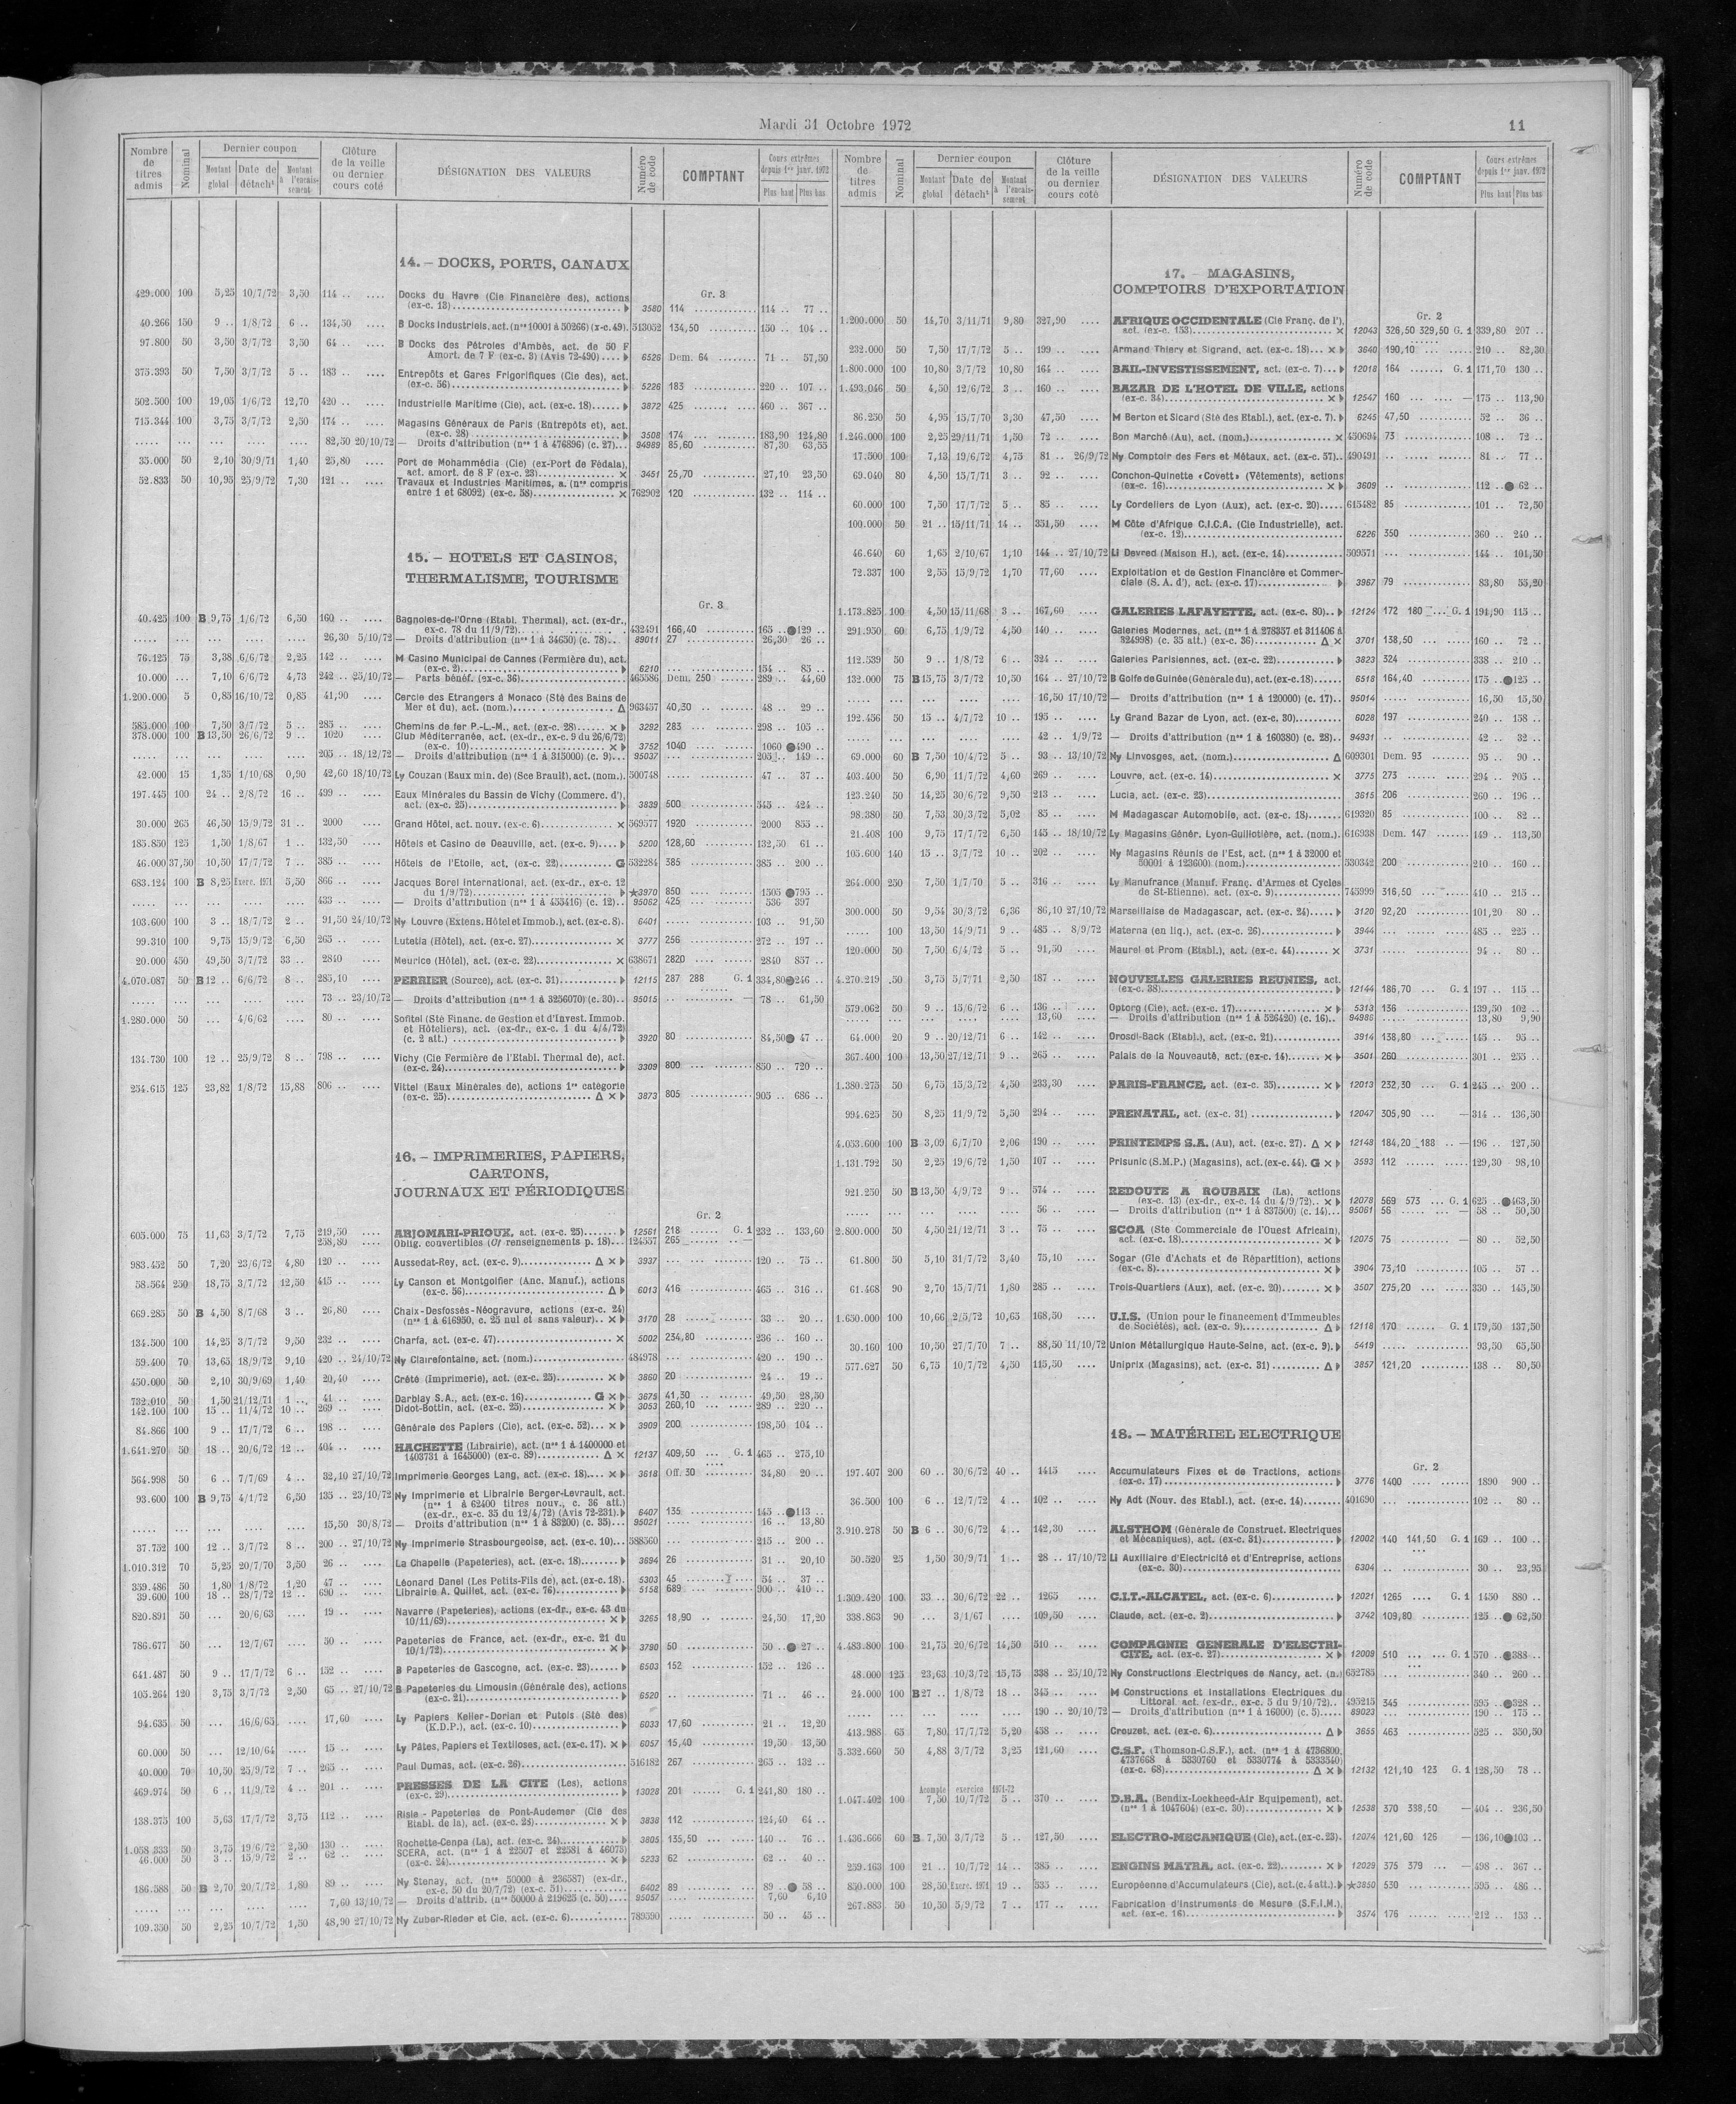 Mardi 31 Octobre 1972
11
Nombre de titres admis
Nominal
Dernier coupon
Montant global
Date de détach^t
Montant à l'encaissement
Clôture de la veille ou dernier cours coté
DÉSIGNATION DES VALEURS
Numéro de code
COMPTANT
Cours extrêmes depuis 1er janv. 1972
Plus haut
Plus bas
14. – DOCKS, PORTS, CANAUX
Gr. 3
429.000 100 5,25 10/7/72 3,50 114 .. .... Docks du Havre (Cie Financière des), actions
(ex-c. 13) 3580 114 114 .. 77 ..
40.266 150 9 .. 1/8/72 6 .. 134,50 .... B Docks Industriels, act. (nos 10001 à 50266) (x-c. 49). 513052 134,50 150 .. 104 ..
97.800 50 3,50 3/7/72 3,50 64 .. .... B Docks des Pétroles d'Ambès, act. de 50 F
Amort. de 7 F (ex-c. 3) (Avis 72-490) 6526 Dem. 64 71 .. 57,50
375.393 50 7,50 3/7/72 5 .. 183 .. .... Entrepôts et Gares Frigorifiques (Cie des), act.
(ex-c. 56) 5226 183 220 .. 107 ..
502.500 100 19,05 1/6/72 12,70 420 .. .... Industrielle Maritime (Cie), act. (ex-c. 18) 3872 425 460 .. 367 ..
715.344 100 3,75 3/7/72 2,50 174 .. .... Magasins Généraux de Paris (Entrepôts et), act.
(ex-c. 28) 3508 174 183,90 124,80
82,50 20/10/72 — Droits d'attribution (nos 1 à 476896) (c. 27) 94989 85,60 87,30 63,55
35.000 50 2,10 30/9/71 1,40 25,80 .... Port de Mohammédia (Cie) (ex-Port de Fédala),
act. amort. de 8 F (ex-c. 23) × 3451 25,70 27,10 23,50
52.833 50 10,95 25/9/72 7,30 121 .. .... Travaux et Industries Maritimes, a. (nos compris
entre 1 et 68092) (ex-c. 58) × 762902 120 132 .. 114 ..
15. – HOTELS ET CASINOS,
THERMALISME, TOURISME
Gr. 3
40.425 100 B 9,75 1/6/72 6,50 160 .. .... Bagnoles-de-l'Orne (Etabl. Thermal), act. (ex-dr.,
ex-c. 78 du 11/9/72) 432491 166,40 165 .. ● 129 ..
26,30 5/10/72 — Droits d'attribution (nos 1 à 34650) (c. 78) 89011 27 26,30 26 ..
76.125 75 3,38 6/6/72 2,25 142 .. .... M Casino Municipal de Cannes (Fermière du), act.
(ex-c. 2) 6210 154 .. 85 ..
10.000 ... 7,10 6/6/72 4,73 242 .. 25/10/72 — Parts bénéf. (ex-c. 36) 465586 Dem. 250 289 .. 44,60
1.200.000 5 0,85 16/10/72 0,85 41,90 .... Cercle des Etrangers à Monaco (Sté des Bains de
Mer et du), act. (nom.) Δ 963457 40,30 48 .. 29 ..
585.000 100 7,50 3/7/72 5 .. 285 .. .... Chemins de fer P.-L.-M., act. (ex-c. 28) × 3292 283 298 .. 105 ..
378.000 100 B 13,50 26/6/72 9 .. 1020 .... Club Méditerranée, act. (ex-dr., ex-c. 9 du 26/6/72)
(ex-c. 10) × 3752 1040 1060 ● 490 ..
205 .. 18/12/72 — Droits d'attribution (nos 1 à 315000) (c. 9) 95037 205 .. 149 ..
42.000 15 1,35 1/10/68 0,90 42,60 18/10/72 Ly Couzan (Eaux min. de) (Sce Brault), act. (nom.). 500748 47 .. 37 ..
197.445 100 24 .. 2/8/72 16 .. 499 .. .... Eaux Minérales du Bassin de Vichy (Commerc. d'),
act. (ex-c. 25) 3839 500 545 .. 424 ..
30.000 265 46,50 15/9/72 31 .. 2000 .... Grand Hôtel, act. nouv. (ex-c. 6) × 569577 1920 2000 855 ..
185.850 125 1,50 1/8/67 1 .. 132,50 .... Hôtels et Casino de Deauville, act. (ex-c. 9) 5200 128,60 132,50 61 ..
46.000 37,50 10,50 17/7/72 7 .. 385 .. .... Hôtels de l'Etoile, act. (ex-c. 22) G 532284 385 385 .. 200 ..
683.124 100 B 8,25 Exerc. 1971 5,50 866 .. .... Jacques Borel International, act. (ex-dr., ex-c. 12
du 1/9/72) ★3970 850 1505 ● 795 ..
433 .. .... — Droits d'attribution (nos 1 à 455416) (c. 12) 95062 425 536 397
103.600 100 3 .. 18/7/72 2 .. 91,50 24/10/72 Ny Louvre (Extens. Hôtel et Immob.), act. (ex-c. 8). 6401 103 .. 91,50
99.310 100 9,75 15/9/72 6,50 265 .. .... Lutetia (Hôtel), act. (ex-c. 27) × 3777 256 272 .. 197 ..
20.000 450 49,50 3/7/72 33 .. 2840 .... Meurice (Hôtel), act. (ex-c. 22) × 638671 2820 2840 857 ..
4.070.087 50 B 12 .. 6/6/72 8 .. 285,10 .... PERRIER (Source), act. (ex-c. 31) 12115 287 288 G. 1 334,80 ● 246 ..
73 .. 23/10/72 — Droits d'attribution (nos 1 à 3256070) (c. 30) 95015 — 78 .. 61,50
1.280.000 50 ... 4/6/62 .... 80 .. .... Sofitel (Sté Financ. de Gestion et d'Invest. Immob.
et Hôteliers), act. (ex-dr., ex-c. 1 du 4/4/72)
(c. 2 att.) 3920 80 84,50 ● 47 ..
134.730 100 12 .. 25/9/72 8 .. 798 .. .... Vichy (Cie Fermière de l'Etabl. Thermal de), act.
(ex-c. 24) 3309 800 850 .. 720 ..
254.615 125 23,82 1/8/72 15,88 806 .. .... Vittel (Eaux Minérales de), actions 1re catégorie
(ex-c. 25) Δ × 3873 805 905 .. 686 ..
16. – IMPRIMERIES, PAPIERS,
CARTONS,
JOURNAUX ET PÉRIODIQUES
Gr. 2
605.000 75 11,63 3/7/72 7,75 219,50 .... ARJOMARI-PRIOUX, act. (ex-c. 25) 12561 218 G. 1 232 .. 133,60
258,80 .... Oblig. convertibles (Cf renseignements p. 18) 124557 265 —
983.452 50 7,20 23/6/72 4,80 120 .. .... Aussedat-Rey, act. (ex-c. 9) Δ × 3937 120 .. 75 ..
58.564 250 18,75 3/7/72 12,50 415 .. .... Ly Canson et Montgolfier (Anc. Manuf.), actions
(ex-c. 56) Δ 6013 416 465 .. 316 ..
669.285 50 B 4,50 8/7/68 3 .. 26,80 .... Chaix-Desfossés-Néogravure, actions (ex-c. 24)
(nos 1 à 616950, c. 25 nul et sans valeur) × 3170 28 33 .. 20 ..
134.500 100 14,25 3/7/72 9,50 232 .. .... Charfa, act. (ex-c. 47) × 5002 234,80 236 .. 160 ..
59.400 70 13,65 18/9/72 9,10 420 .. 24/10/72 Ny Clairefontaine, act. (nom.) 484978 420 .. 190 ..
450.000 50 2,10 30/9/69 1,40 20,40 .... Crété (Imprimerie), act. (ex-c. 25) × 3860 20 24 .. 19 ..
732.010 50 1,50 21/12/71 1 .. 41 .. .... Darblay S.A., act. (ex-c. 16) G × 3675 41,30 49,50 28,50
142.100 100 15 .. 11/4/72 10 .. 269 .. .... Didot-Bottin, act. (ex-c. 25) × 3053 260,10 289 .. 220 ..
84.866 100 9 .. 17/7/72 6 .. 198 .. .... Générale des Papiers (Cie), act. (ex-c. 52) × 3909 200 198,50 104 ..
1.641.270 50 18 .. 20/6/72 12 .. 404 .. .... HACHETTE (Librairie), act. (nos 1 à 1400000 et
1403731 à 1645000) (ex-c. 89) Δ × 12137 409,50 G. 1 465 .. 275,10
564.998 50 6 .. 7/7/69 4 .. 32,10 27/10/72 Imprimerie Georges Lang, act. (ex-c. 18) × 3618 Off. 30 34,80 20 ..
93.600 100 B 9,75 4/1/72 6,50 135 .. 23/10/72 Ny Imprimerie et Librairie Berger-Levrault, act.
(nos 1 à 62400 titres nouv., c. 36 att.)
(ex-dr., ex-c. 35 du 12/4/72) (Avis 72-231) 6407 135 145 .. ● 113 ..
15,50 30/8/72 — Droits d'attribution (nos 1 à 83200) (c. 35) 95021 16 .. 13,80
37.752 100 12 .. 3/7/72 8 .. 200 .. 27/10/72 Ny Imprimerie Strasbourgeoise, act. (ex-c. 10) 588560 215 .. 200 ..
1.010.312 70 5,25 20/7/70 3,50 26 .. .... La Chapelle (Papeteries), act. (ex-c. 18) 3694 26 31 .. 20,10
339.486 50 1,80 1/8/72 1,20 47 .. .... Léonard Danel (Les Petits-Fils de), act. (ex-c. 18). 5303 45 54 .. 37 ..
39.600 100 18 .. 28/7/72 12 .. 690 .. .... Librairie A. Quillet, act. (ex-c. 76) 5158 689 900 .. 410 ..
820.891 50 ... 20/6/63 .... 19 .. .... Navarre (Papeteries), actions (ex-dr., ex-c. 43 du
10/11/69) × 3265 18,90 24,50 17,20
786.677 50 ... 12/7/67 .... 50 .. .... Papeteries de France, act. (ex-dr., ex-c. 21 du
10/1/72) × 3790 50 50 .. ● 27 ..
641.487 50 9 .. 17/7/72 6 .. 152 .. .... B Papeteries de Gascogne, act. (ex-c. 23) 6503 152 152 .. 126 ..
105.264 120 3,75 3/7/72 2,50 65 .. 27/10/72 B Papeteries du Limousin (Générale des), actions
(ex-c. 21) 6520 71 .. 46 ..
94.635 50 ... 16/6/65 .... 17,60 .... Ly Papiers Keller-Dorian et Putois (Sté des)
(K.D.P.), act. (ex-c. 10) 6033 17,60 21 .. 12,20
60.000 50 ... 12/10/64 .... 15 .. .... Ly Pâtes, Papiers et Textiloses, act. (ex-c. 17). × 6057 15,40 19,50 13,50
40.000 70 10,50 25/9/72 7 .. 265 .. .... Paul Dumas, act. (ex-c. 26) 516182 267 265 .. 132 ..
469.974 50 6 .. 11/9/72 4 .. 201 .. .... PRESSES DE LA CITE (Les), actions
(ex-c. 29) 13028 201 G. 1 241,80 180 ..
138.375 100 5,63 17/7/72 3,75 112 .. .... Risle - Papeteries de Pont-Audemer (Cie des
Etabl. de la), act. (ex-c. 25) × 3838 112 124,40 64 ..
1.058.333 50 3,75 19/6/72 2,50 130 .. .... Rochette-Cenpa (La), act. (ex-c. 24) 3805 135,50 140 .. 76 ..
46.000 50 3 .. 15/9/72 2 .. 62 .. .... SCERA, act. (nos 1 à 22507 et 22581 à 46073)
(ex-c. 24) × 5233 62 62 .. 40 ..
186.588 50 B 2,70 20/7/72 1,80 89 .. .... Ny Stenay, act. (nos 50000 à 236587) (ex-dr.,
ex-c. 50 du 20/7/72) (ex-c. 51) 6402 89 89 .. ● 58 ..
7,60 13/10/72 — Droits d'attrib. (nos 50000 à 219625 (c. 50) 95057 7,60 6,10
109.350 50 2,25 10/7/72 1,50 48,90 27/10/72 Ny Zuber-Rieder et Cie, act. (ex-c. 6) 789590 50 .. 45 ..
Nombre de titres admis
Nominal
Dernier coupon
Montant global
Date de détach^t
Montant à l'encaissement
Clôture de la veille ou dernier cours coté
DÉSIGNATION DES VALEURS
Numéro de code
COMPTANT
Cours extrêmes depuis 1er janv. 1972
Plus haut
Plus bas
17. – MAGASINS,
COMPTOIRS D'EXPORTATION
Gr. 2
1.200.000 50 14,70 3/11/71 9,80 327,90 .... AFRIQUE OCCIDENTALE (Cie Franç. de l'),
act. (ex-c. 153) × 12043 326,50 329,50 G. 1 339,80 207 ..
232.000 50 7,50 17/7/72 5 .. 199 .. .... Armand Thiery et Sigrand, act. (ex-c. 18) × 3640 190,10 210 .. 82,30
1.800.000 100 10,80 3/7/72 10,80 164 .. .... BAIL-INVESTISSEMENT, act. (ex-c. 7) 12018 164 G. 1 171,70 130 ..
1.493.046 50 4,50 12/6/72 3 .. 160 .. .... BAZAR DE L'HOTEL DE VILLE, actions
(ex-c. 34) × 12547 160 — 175 .. 113,90
86.250 50 4,95 15/7/70 3,30 47,50 .... M Berton et Sicard (Sté des Etabl.), act. (ex-c. 7). 6245 47,50 52 .. 36 ..
1.246.000 100 2,25 29/11/71 1,50 72 .. .... Bon Marché (Au), act. (nom.) × 450694 73 108 .. 72 ..
17.500 100 7,13 19/6/72 4,75 81 .. 26/9/72 Ny Comptoir des Fers et Métaux, act. (ex-c. 57) 490491 81 .. 77 ..
69.040 80 4,50 15/7/71 3 .. 92 .. .... Conchon-Quinette «Covett» (Vêtements), actions
(ex-c. 16) × 3609 112 .. ● 62 ..
60.000 100 7,50 17/7/72 5 .. 85 .. .... Ly Cordeliers de Lyon (Aux), act. (ex-c. 20) 615482 85 101 .. 72,50
100.000 50 21 .. 15/11/71 14 .. 351,50 .... M Côte d'Afrique C.I.C.A. (Cie Industrielle), act.
(ex-c. 12) 6226 350 360 .. 240 ..
46.640 60 1,65 2/10/67 1,10 144 .. 27/10/72 Li Devred (Maison H.), act. (ex-c. 14) 509571 144 .. 101,50
72.337 100 2,55 15/9/72 1,70 77,60 .... Exploitation et de Gestion Financière et Commer-
ciale (S. A. d'), act. (ex-c. 17) 3967 79 83,80 55,20
1.173.825 100 4,50 15/11/68 3 .. 167,60 .... GALERIES LAFAYETTE, act. (ex-c. 80) 12124 172 180 G. 1 191,90 115 ..
291.950 60 6,75 1/9/72 4,50 140 .. .... Galeries Modernes, act. (nos 1 à 278357 et 311406 à
324998) (c. 35 att.) (ex-c. 36) Δ × 3701 138,50 160 .. 72 ..
112.539 50 9 .. 1/8/72 6 .. 324 .. .... Galeries Parisiennes, act. (ex-c. 22) 3823 324 338 .. 210 ..
132.000 75 B 15,75 3/7/72 10,50 164 .. 27/10/72 B Golfe de Guinée (Générale du), act. (ex-c. 18) 6518 164,40 175 .. ● 125 ..
16,50 17/10/72 — Droits d'attribution (nos 1 à 120000) (c. 17) 95014 16,50 15,50
192.456 50 15 .. 4/7/72 10 .. 195 .. .... Ly Grand Bazar de Lyon, act. (ex-c. 30) 6028 197 240 .. 158 ..
42 .. 1/9/72 — Droits d'attribution (nos 1 à 160380) (c. 28) 94931 42 .. 32 ..
69.000 60 B 7,50 10/4/72 5 .. 93 .. 13/10/72 Ny Linvosges, act. (nom.) Δ 609301 Dem. 93 95 .. 90 ..
403.400 50 6,90 11/7/72 4,60 269 .. .... Louvre, act. (ex-c. 14) × 3775 273 294 .. 205 ..
123.240 50 14,25 30/6/72 9,50 213 .. .... Lucia, act. (ex-c. 23) 3615 206 260 .. 196 ..
98.380 50 7,53 30/3/72 5,02 85 .. .... M Madagascar Automobile, act. (ex-c. 18) 619320 85 100 .. 82 ..
21.408 100 9,75 17/7/72 6,50 145 .. 18/10/72 Ly Magasins Génér. Lyon-Guillotière, act. (nom.) 616938 Dem. 147 149 .. 113,50
105.600 140 15 .. 3/7/72 10 .. 202 .. .... Ny Magasins Réunis de l'Est, act. (nos 1 à 32000 et
50001 à 123600) (nom.) 530342 200 210 .. 160 ..
264.000 250 7,50 1/7/70 5 .. 316 .. .... Ly Manufrance (Manuf. Franç. d'Armes et Cycles
de St-Etienne), act. (ex-c. 9) 745999 316,50 410 .. 215 ..
300.000 50 9,54 30/3/72 6,36 86,10 27/10/72 Marseillaise de Madagascar, act. (ex-c. 24) 3120 92,20 101,20 80 ..
..... 100 13,50 14/9/71 9 .. 485 .. 8/9/72 Materna (en liq.), act. (ex-c. 26) 3944 485 .. 225 ..
120.000 50 7,50 6/4/72 5 .. 91,50 .... Maurel et Prom (Etabl.), act. (ex-c. 44) × 3731 94 .. 80 ..
4.270.219 50 3,75 5/7/71 2,50 187 .. .... NOUVELLES GALERIES REUNIES, act.
(ex-c. 38) 12144 186,70 G. 1 197 .. 115 ..
579.062 50 9 .. 15/6/72 6 .. 136 .. .... Optorg (Cie), act. (ex-c. 17) × 5313 136 139,50 102 ..
13,60 .... — Droits d'attribution (nos 1 à 526420) (c. 16) 94986 13,80 9,90
64.000 20 9 .. 20/12/71 6 .. 142 .. .... Orosdi-Back (Etabl.), act. (ex-c. 21) 3914 138,80 145 .. 95 ..
367.400 100 13,50 27/12/71 9 .. 265 .. .... Palais de la Nouveauté, act. (ex-c. 14) × 3501 260 301 .. 255 ..
1.380.275 50 6,75 15/3/72 4,50 233,30 .... PARIS-FRANCE, act. (ex-c. 35) × 12013 232,30 G. 1 245 .. 200 ..
994.625 50 8,25 11/9/72 5,50 294 .. .... PRENATAL, act. (ex-c. 31) 12047 305,90 — 314 .. 136,50
4.053.600 100 B 3,09 6/7/70 2,06 190 .. .... PRINTEMPS S.A. (Au), act. (ex-c. 27). Δ × 12148 184,20 188 — 196 .. 127,50
1.131.792 50 2,25 19/6/72 1,50 107 .. .... Prisunic (S.M.P.) (Magasins), act. (ex-c. 44). G × 3593 112 129,30 98,10
921.250 50 B 13,50 4/9/72 9 .. 574 .. .... REDOUTE A ROUBAIX (La), actions
(ex-c. 13) (ex-dr., ex-c. 14 du 4/9/72) × 12078 569 573 G. 1 625 .. ● 463,50
56 .. .... — Droits d'attribution (nos 1 à 837500) (c. 14) 95061 56 — 58 .. 50,50
2.800.000 50 4,50 21/12/71 3 .. 75 .. .... SCOA (Ste Commerciale de l'Ouest Africain),
act. (ex-c. 18) × 12075 75 — 80 .. 52,50
61.800 50 5,10 31/7/72 3,40 75,10 .... Sogar (Gie d'Achats et de Répartition), actions
(ex-c. 8) × 3904 73,10 105 .. 57 ..
61.468 90 2,70 15/7/71 1,80 285 .. .... Trois-Quartiers (Aux), act. (ex-c. 20) × 3507 275,20 330 .. 145,50
1.650.000 100 10,66 2/5/72 10,65 168,50 .... U.I.S. (Union pour le financement d'Immeubles
de Sociétés), act. (ex-c. 9) Δ 12118 170 G. 1 179,50 137,50
30.160 100 10,50 27/7/70 7 .. 88,50 11/10/72 Union Métallurgique Haute-Seine, act. (ex-c. 9). 5419 93,50 65,50
577.627 50 6,75 10/7/72 4,50 115,50 .... Uniprix (Magasins), act. (ex-c. 31) Δ 3857 121,20 138 .. 80,50
18. – MATÉRIEL ELECTRIQUE
Gr. 2
197.407 200 60 .. 30/6/72 40 .. 1415 .... Accumulateurs Fixes et de Tractions, actions
(ex-c. 17) 3776 1400 1890 900 ..
36.500 100 6 .. 12/7/72 4 .. 102 .. .... Ny Adt (Nouv. des Etabl.), act. (ex-c. 14) 401690 102 .. 80 ..
3.910.278 50 B 6 .. 30/6/72 4 .. 142,30 .... ALSTHOM (Générale de Construct. Electriques
et Mécaniques), act. (ex-c. 31) 12002 140 141,50 G. 1 169 .. 100 ..
50.520 25 1,50 30/9/71 1 .. 28 .. 17/10/72 Li Auxiliaire d'Electricité et d'Entreprise, actions
(ex-c. 30) 6304 30 .. 23,95
1.309.420 100 33 .. 30/6/72 22 .. 1265 .... C.I.T.-ALCATEL, act. (ex-c. 6) 12021 1265 G. 1 1450 880 ..
338.863 90 ... 3/1/67 .... 109,50 .... Claude, act. (ex-c. 2) 3742 109,80 125 .. ● 62,50
4.483.800 100 21,75 20/6/72 14,50 510 .. .... COMPAGNIE GENERALE D'ELECTRI-
CITE, act. (ex-c. 27) × 12009 510 G. 1 570 .. ● 383 ..
48.000 125 23,63 10/3/72 15,75 338 .. 25/10/72 Ny Constructions Electriques de Nancy, act. (n.) 652785 340 .. 260 ..
24.000 100 B 27 .. 1/8/72 18 .. 345 .. .... M Constructions et Installations Electriques du
Littoral, act. (ex-dr., ex-c. 5 du 9/10/72) 495215 345 595 .. ● 328 ..
190 .. 20/10/72 — Droits d'attribution (nos 1 à 16000) (c. 5) 89023 190 .. 175 ..
413.988 65 7,80 17/7/72 5,20 458 .. .... Crouzet, act. (ex-c. 6) Δ 3655 463 525 .. 350,50
5.332.660 50 4,88 3/7/72 3,25 121,60 .... C.S.F. (Thomson-C.S.F.), act. (nos 1 à 4736800,
4737668 à 5330760 et 5330774 à 5333540)
(ex-c. 68) Δ × 12132 121,10 123 G. 1 128,50 78 ..
Acompte exercice 1971-72
1.047.402 100 7,50 10/7/72 5 .. 370 .. .... D.B.A. (Bendix-Lockheed-Air Equipement), act.
(nos 1 à 1047604) (ex-c. 30) × 12538 370 338,50 — 404 .. 236,50
1.436.666 60 B 7,50 3/7/72 5 .. 127,50 .... ELECTRO-MECANIQUE (Cie), act. (ex-c. 23). 12074 121,60 126 — 136,10 ● 103 ..
259.163 100 21 .. 10/7/72 14 .. 385 .. .... ENGINS MATRA, act. (ex-c. 22) × 12029 375 379 — 498 .. 367 ..
850.000 100 28,50 Exerc. 1971 19 .. 535 .. .... Européenne d'Accumulateurs (Cie), act. (c. 4 att.). ★3850 530 595 .. 486 ..
267.883 50 10,50 5/9/72 7 .. 177 .. .... Fabrication d'Instruments de Mesure (S.F.I.M.),
act. (ex-c. 16) 3574 176 212 .. 153 ..